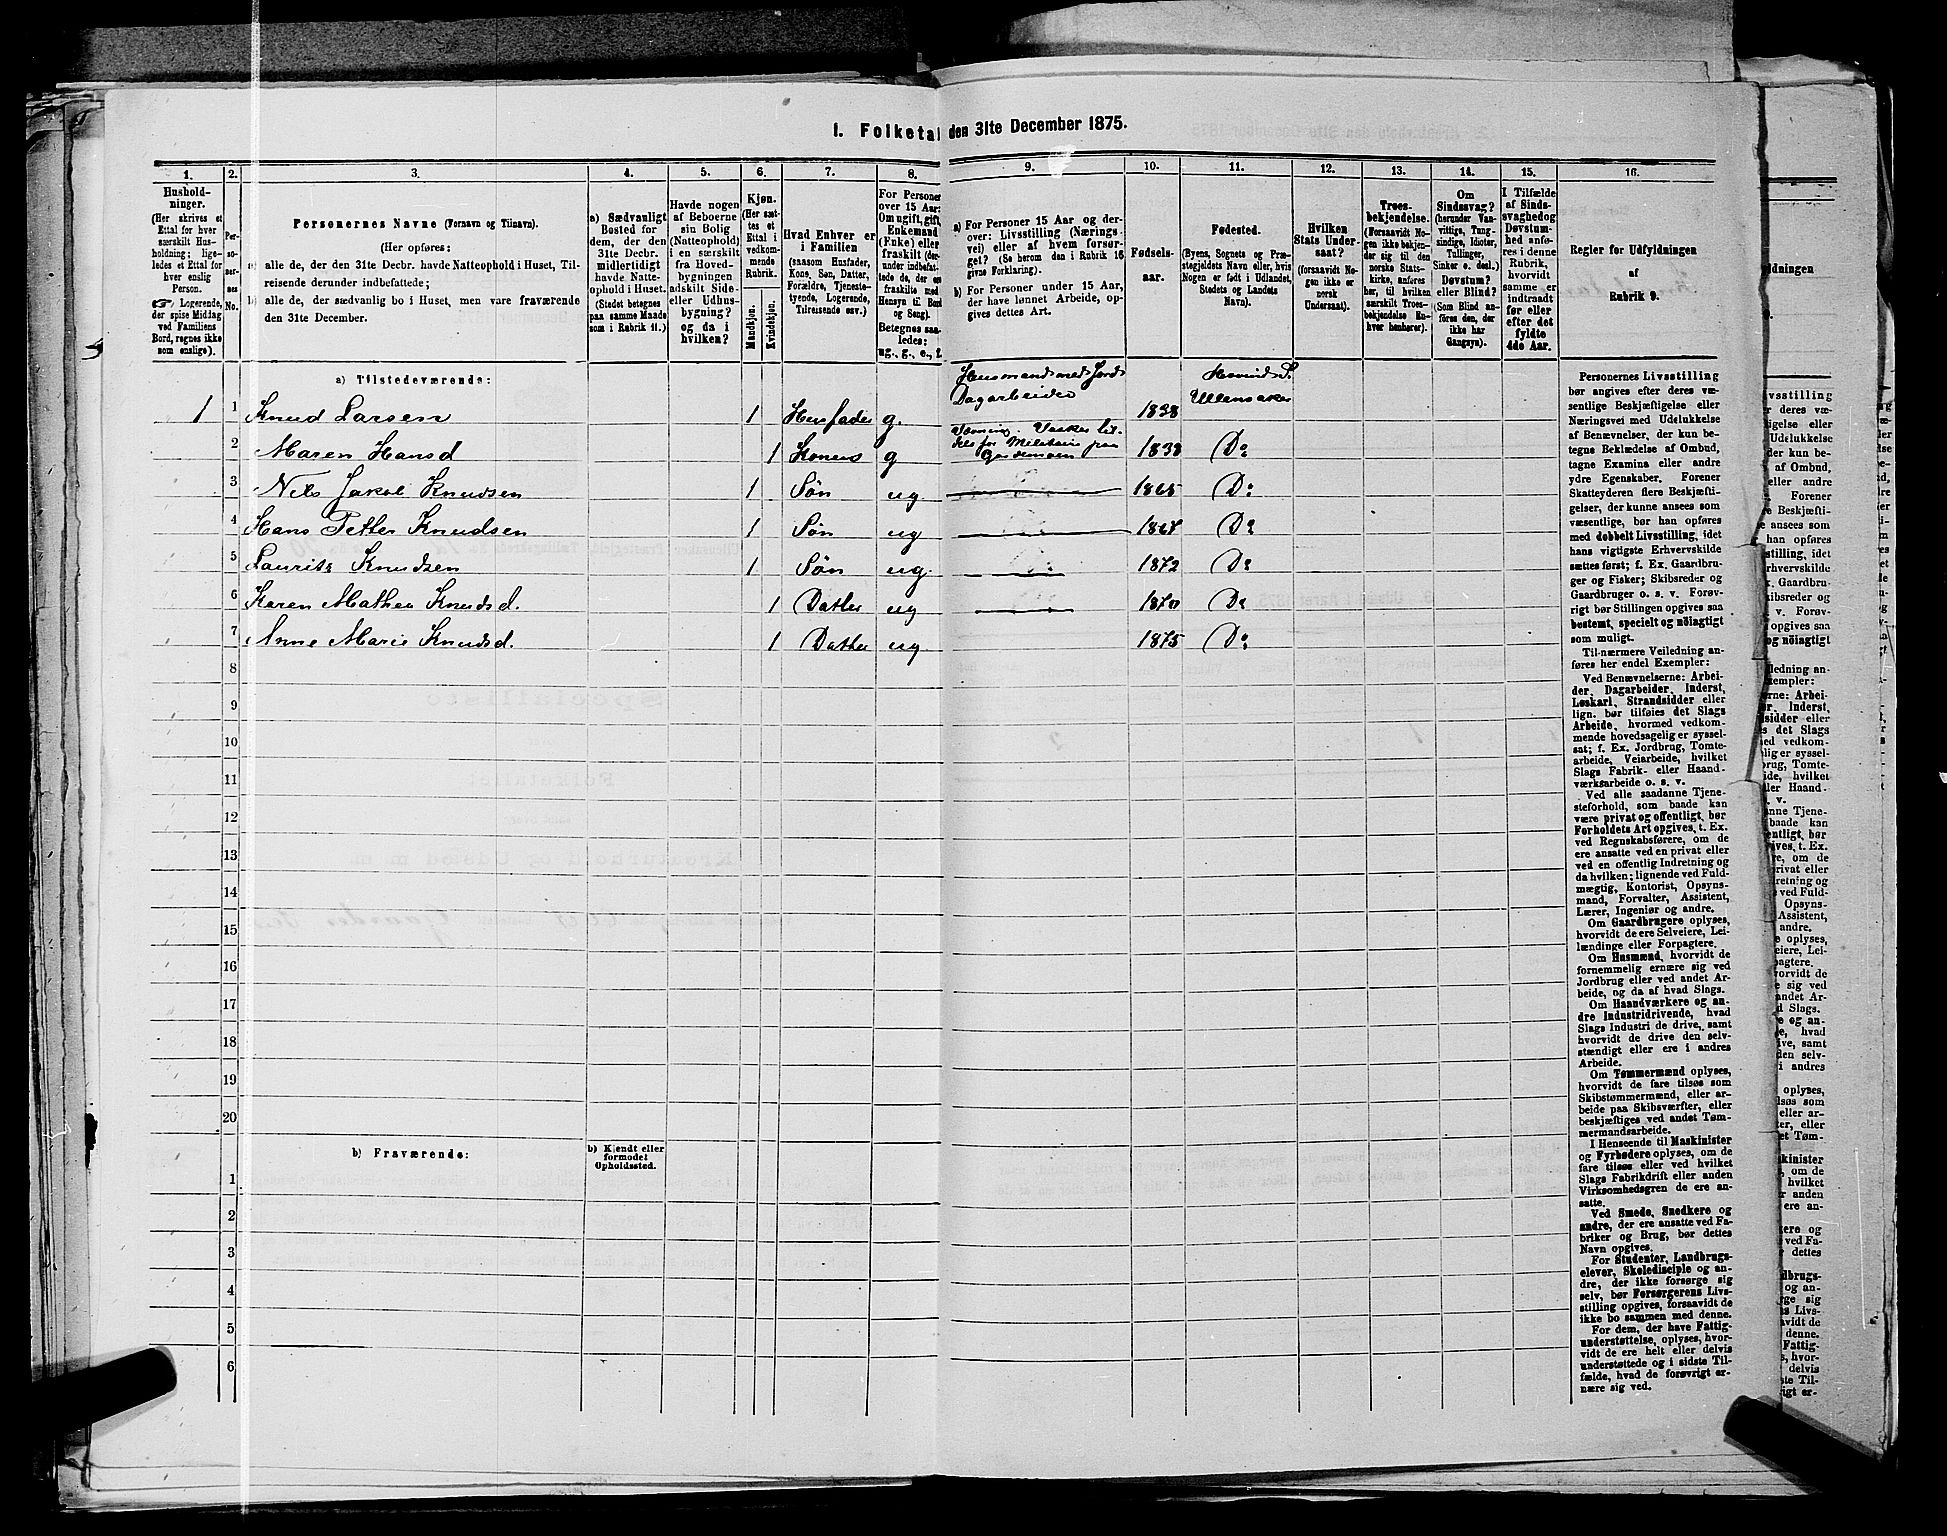 I. Folketal den 31te December 1875.
1.
2.
3.
4.
5.
6.
7.
8.
9.
10.
11.
12.
13.
14.
15.
16.
Hushold-
ninger.
(Her skrives et
Ettal for hver
særskilt Hus-
holdning; lige-
ledes et Ettal for
hver enslig
Person.
☞ Logerende,
der spise Middag
ved Familiens
Bord, regnes ikke
som enslige).
Per-
so-
ner-
nes
No.
Personernes Navne (Fornavn og Tilnavn).
(Her opføres:
a) alle de, der den 31te Decbr. havde Natteophold i Huset, Til-
reisende derunder indbefattede;
b) alle de, der sædvanlig bo i Huset, men vare fraværende
den 31te December.
a) Sædvanligt
Bosted for
dem, der den
31te Decbr.
midlertidigt
havde Natte-
ophold i Huset.
(Stedet betegnes
paa samme Maade
som i Rubrik 11.)
Havde nogen
af Beboerne
sin Bolig
(Natteophold)
i en særskilt
fra Hoved-
bygningen
adskilt Side-
eller Udhus-
bygning?
og da i
hvilken?
Kjøn.
(Her sæt-
tes et
Ettal i
vedkom-
mende
Rubrik.
Mandkjøn.
Kvindekjøn.
Hvad Enhver er
i Familien
(saasom Husfader,
Kone, Søn, Datter,
Forældre, Tjeneste-
tyende, Logerende,
Tilreisende osv.)
For Personer
over 15 Aar:
Om ugift, gift,
Enkemand
(Enke) eller
fraskilt (der-
under indbefat-
tede de, der ere
fraskilte med
Hensyn til Bord
og Seng).
Betegnes saa-
ledes:
ug., g., e., f.
a) For Personer 15 Aar og der-
over: Livsstilling (Nærings-
vei) eller af hvem forsør-
get? (Se herom den i Rubrik 16
givne Forklaring).
b) For Personer under 15 Aar,
der have lønnet Arbeide, op-
gives dettes Art.
Fødsels-
aar.
Fødested.
(Byens, Sognets og Præ-
stegjeldets Navn eller, hvis
Nogen er født i Udlandet,
Stedets og Landets
Navn).
Hvilken
Stats Under-
saat?
(forsaavidt No-
gen ikke er
norsk
Undersaat).
Troes-
bekjendelse.
(Forsaavidt No-
gen ikke bekjen-
der sig til den
norske Stats-
kirke, anføres
her, til hvilken
særskilt Troes-
bekjendelse En-
hver henhører).
Om
Sindssvag?
(herunder Van-
vittige, Tung-
sindige, Idioter,
Tullinger,
Sinker o. desl.)
Døvstum?
eller Blind?
(Som Blind an-
føres den, der
ikke har
Gangsyn).
I Tilfælde
af Sinds-
svaghed og
Døvstum-
hed anfø-
res i denne
Rubrik,
hvorvidt
samme er
indtraadt
før eller
efter det
fyldte
4de Aar.
Regler for Udfyldningen
af
Rubrik 9.
a) Tilstedeværende:
1 1 Knud Larsen 1 Husfader g. Husmand med Jord Dagarbeider 1838 Ullensaker
2 Maren Hansd 1 Kone g Vasker for Militaire paa Gardemoen 1838 Do
3 Nils Jakob Knudsen 1 Søn ug 1865 Do
4 Hans Petter Knudsen 1 Søn ug Do
5 Lauritz Knudsen 1 Søn ug. 1872 Do
6 Karen Mathea Knudsd. 1 Datter ug 1870 Do
7 Anne Marie Knudsd. 1 Datter ug 1875 Do
8
9
10
11
12
13
14
15
16
17
18
19
20
b) Fraværende:
b) Kjendt eller
formodet
Opholdssted.
1
2
3
4
5
6
Personernes Livsstilling
bør angives efter deres væ-
sentlige Beskjæftigelse eller
Næringsvei med Udelukkelse
af Benævnelser, der kun be-
tegne Beklædelse af Ombud,
tagne Examina eller andre
ydre Egenskaber. Forener
Skatteyderen flere Beskjæfti-
gelser, der kunne ansees som
væsentlige, bør han opføres
med dobbelt Livsstilling, idet
hans vigtigste Erhvervskilde
sættes først; f. Ex. Gaardbru-
ger og Fisker; Skibsreder og
Gaardbruger o. s. v. Forøv-
rigt bør Stillingen opgives saa
bestemt, specielt og nøiagtigt
som muligt.
Til nærmere Veiledning an-
føres her endel Exempler:
Ved Benævnelserne: Arbei-
der, Dagarbeider, Inderst,
Løskarl, Strandsidder eller
lign. bør tilføies det Slags
Arbeide, hvormed vedkom-
mende hovedsagelig er syssel-
sat; f. Ex. Jordbrug, Tomte-
arbeide, Veiarbeide, hvilket
Slags Fabrik- eller Haand-
værksarbeide o. s. v.
Ved alle saadanne Tjene-
steforhold, som baade kan
være privat og offentligt, bør
Forholdets Art opgives, t. Ex.
ved Regnskabsførere, om de
ere ansatte ved en privat eller
ved en offentlig Indretning og
da hvilken; lignende ved Fuld-
mægtig, Kontorist, Opsyns-
mand, Forvalter, Assistent,
Lærer, Ingeniør og andre.
Om Gaardbrugere oplyses,
hvorvidt de ere Selveiere, Lei-
lændinge eller Forpagtere.
Om Husmænd, hvorvidt de
fornemmelig ernære sig ved
Jordbrug eller ved andet Ar-
beide, og da af hvad Slags.
Om Haandværkere og an-
dre Industridrivende, hvad
Slags Industri de drive, samt
hvorvidt de drive den selv-
stændigt eller ere i andres
Arbeide.
Om Tømmermænd oplyses,
hvorvidt de fare tilsøs som
Skibstømmermænd, eller ar-
beide paa Skibsværfter, eller
beskjæftiges ved andet Tøm-
mermandsarbeide.
I Henseende til Maskinister
og Fyrbødere oplyses, om de
fare tilsøs eller ved hvilket
Slags Fabrikdrift eller anden
Virksomhedsgren de ere an-
satte.
Ved Smede, Snedkere og
andre, der ere ansatte ved Fa-
briker og Brug, bør dettes
Navn opgives.
For Studenter, Landbrugs-
elever, Skoledisciple og an-
dre, der ikke forsørge sig
selv, bør Forsørgerens Livs-
stilling opgives, forsaavidt de
ikke bo sammen med denne.
For dem, der have Fattig-
understøttelse, oplyses, hvor-
vidt de ere helt eller delvis
understøttede og i sidste Til-
fælde, hvad de forøvrigt er-
nære sig ved.